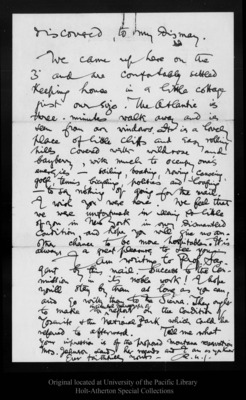 discovered, to my dismay.
We came up here on the
3d and are comfortably settled
keeping house in a little cottage
just our size. The Atlantic is
three minutes walk away and is
seen from our windows. It is a lovely
place of little cliffs and sea, rolling
hills covered with wildrose and
bayberry, with much to occupy one's
energies – sailing, boating, rowing, canoeing
golf, tennis, bicycling, politics and loafing
– to say nothing of going for the mail.
I wish you were here. We feel that
we were unfortunate in seeing so little
of you in New York in our dismantled
condition and hope you will give us another
chance to be more hospitable. It is
always a great pleasure to see you.
I am writing to Prof. Sargent
by this mail. Success to the Commission
in its noble work! I hope
you'll stay by them as long as you can
and go with them to the Sierra. They ought
to make the report on the condition of
Yosemite & the National Park which
refused to afterward. Tell me what
your impression is of the proposed mountain reservations
Mrs. Johnson sends her regards and I am as ever
Ever faithfully yours R.U.J.
Original located at University of the Pacific Library
Holt-Atherton Special Collections